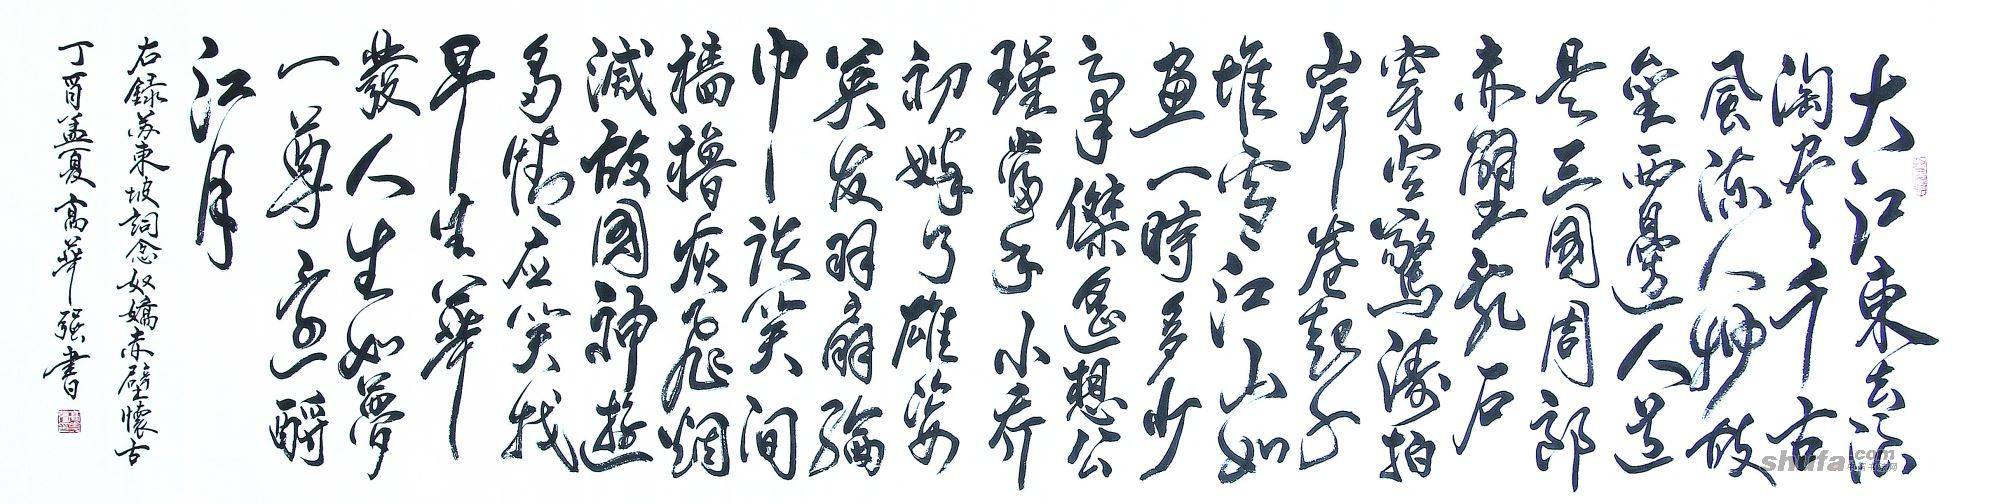 大江東去浪
淘尽千古
風流人物故
壘西邊人道
是三國周郎
赤壁乱石
穿空驚濤拍
岸卷起千
堆雪江山如
画一時多少
豪傑遥想公
瑾當年小乔
初嫁了雄姿
英发羽扇綸
巾談笑间
檣櫓灰飛烟
滅故國神遊
多情应笑我
早生華
發人生如夢
一尊還酹
江月
右録苏東坡詞念奴嬌赤壁懷古
丁酉孟夏高華强書
shufa.com